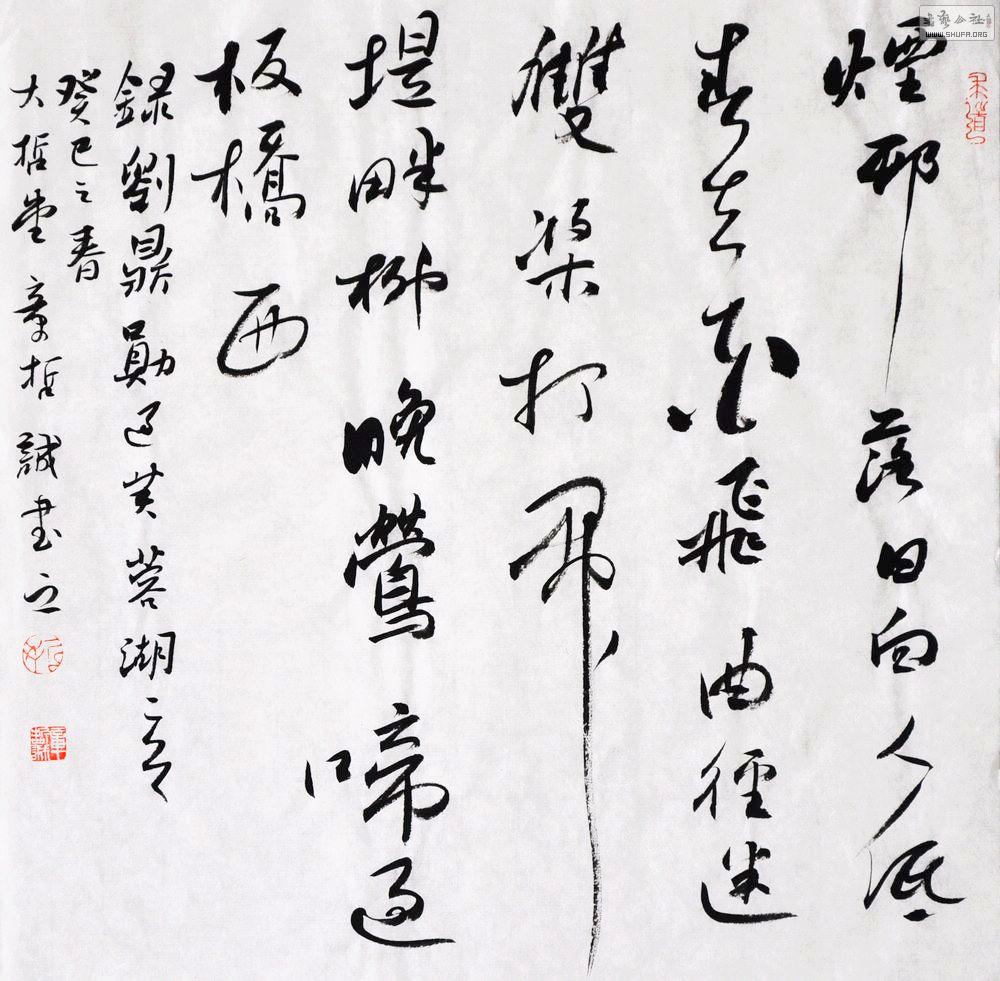 煙邨落日向人低
春去花飛曲徑迷
雙槳打開
堤畔柳晚鶯啼過
板橋西
錄劉鼎勛過芙蓉湖
癸巳之春
大哲堂章哲誠書之
书艺公社
WWW.SHUFA.ORG